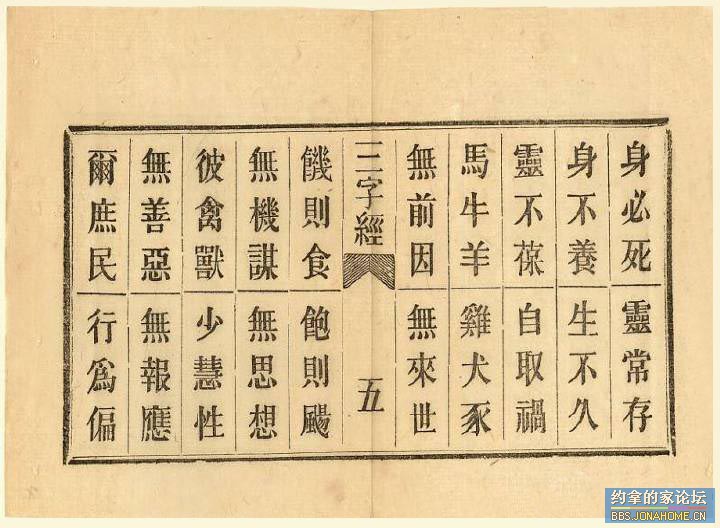 身必死 靈常存
身不養 生不久
靈不葆 自取禍
馬牛羊 雞犬豕
無前因 無來世
三字經 五
饑則食 飽則颺
無機謀 無思想
彼禽獸 少慧性
無善惡 無報應
爾庶民 行爲偏
约拿的家论坛
BBS.JONAHOME.CN